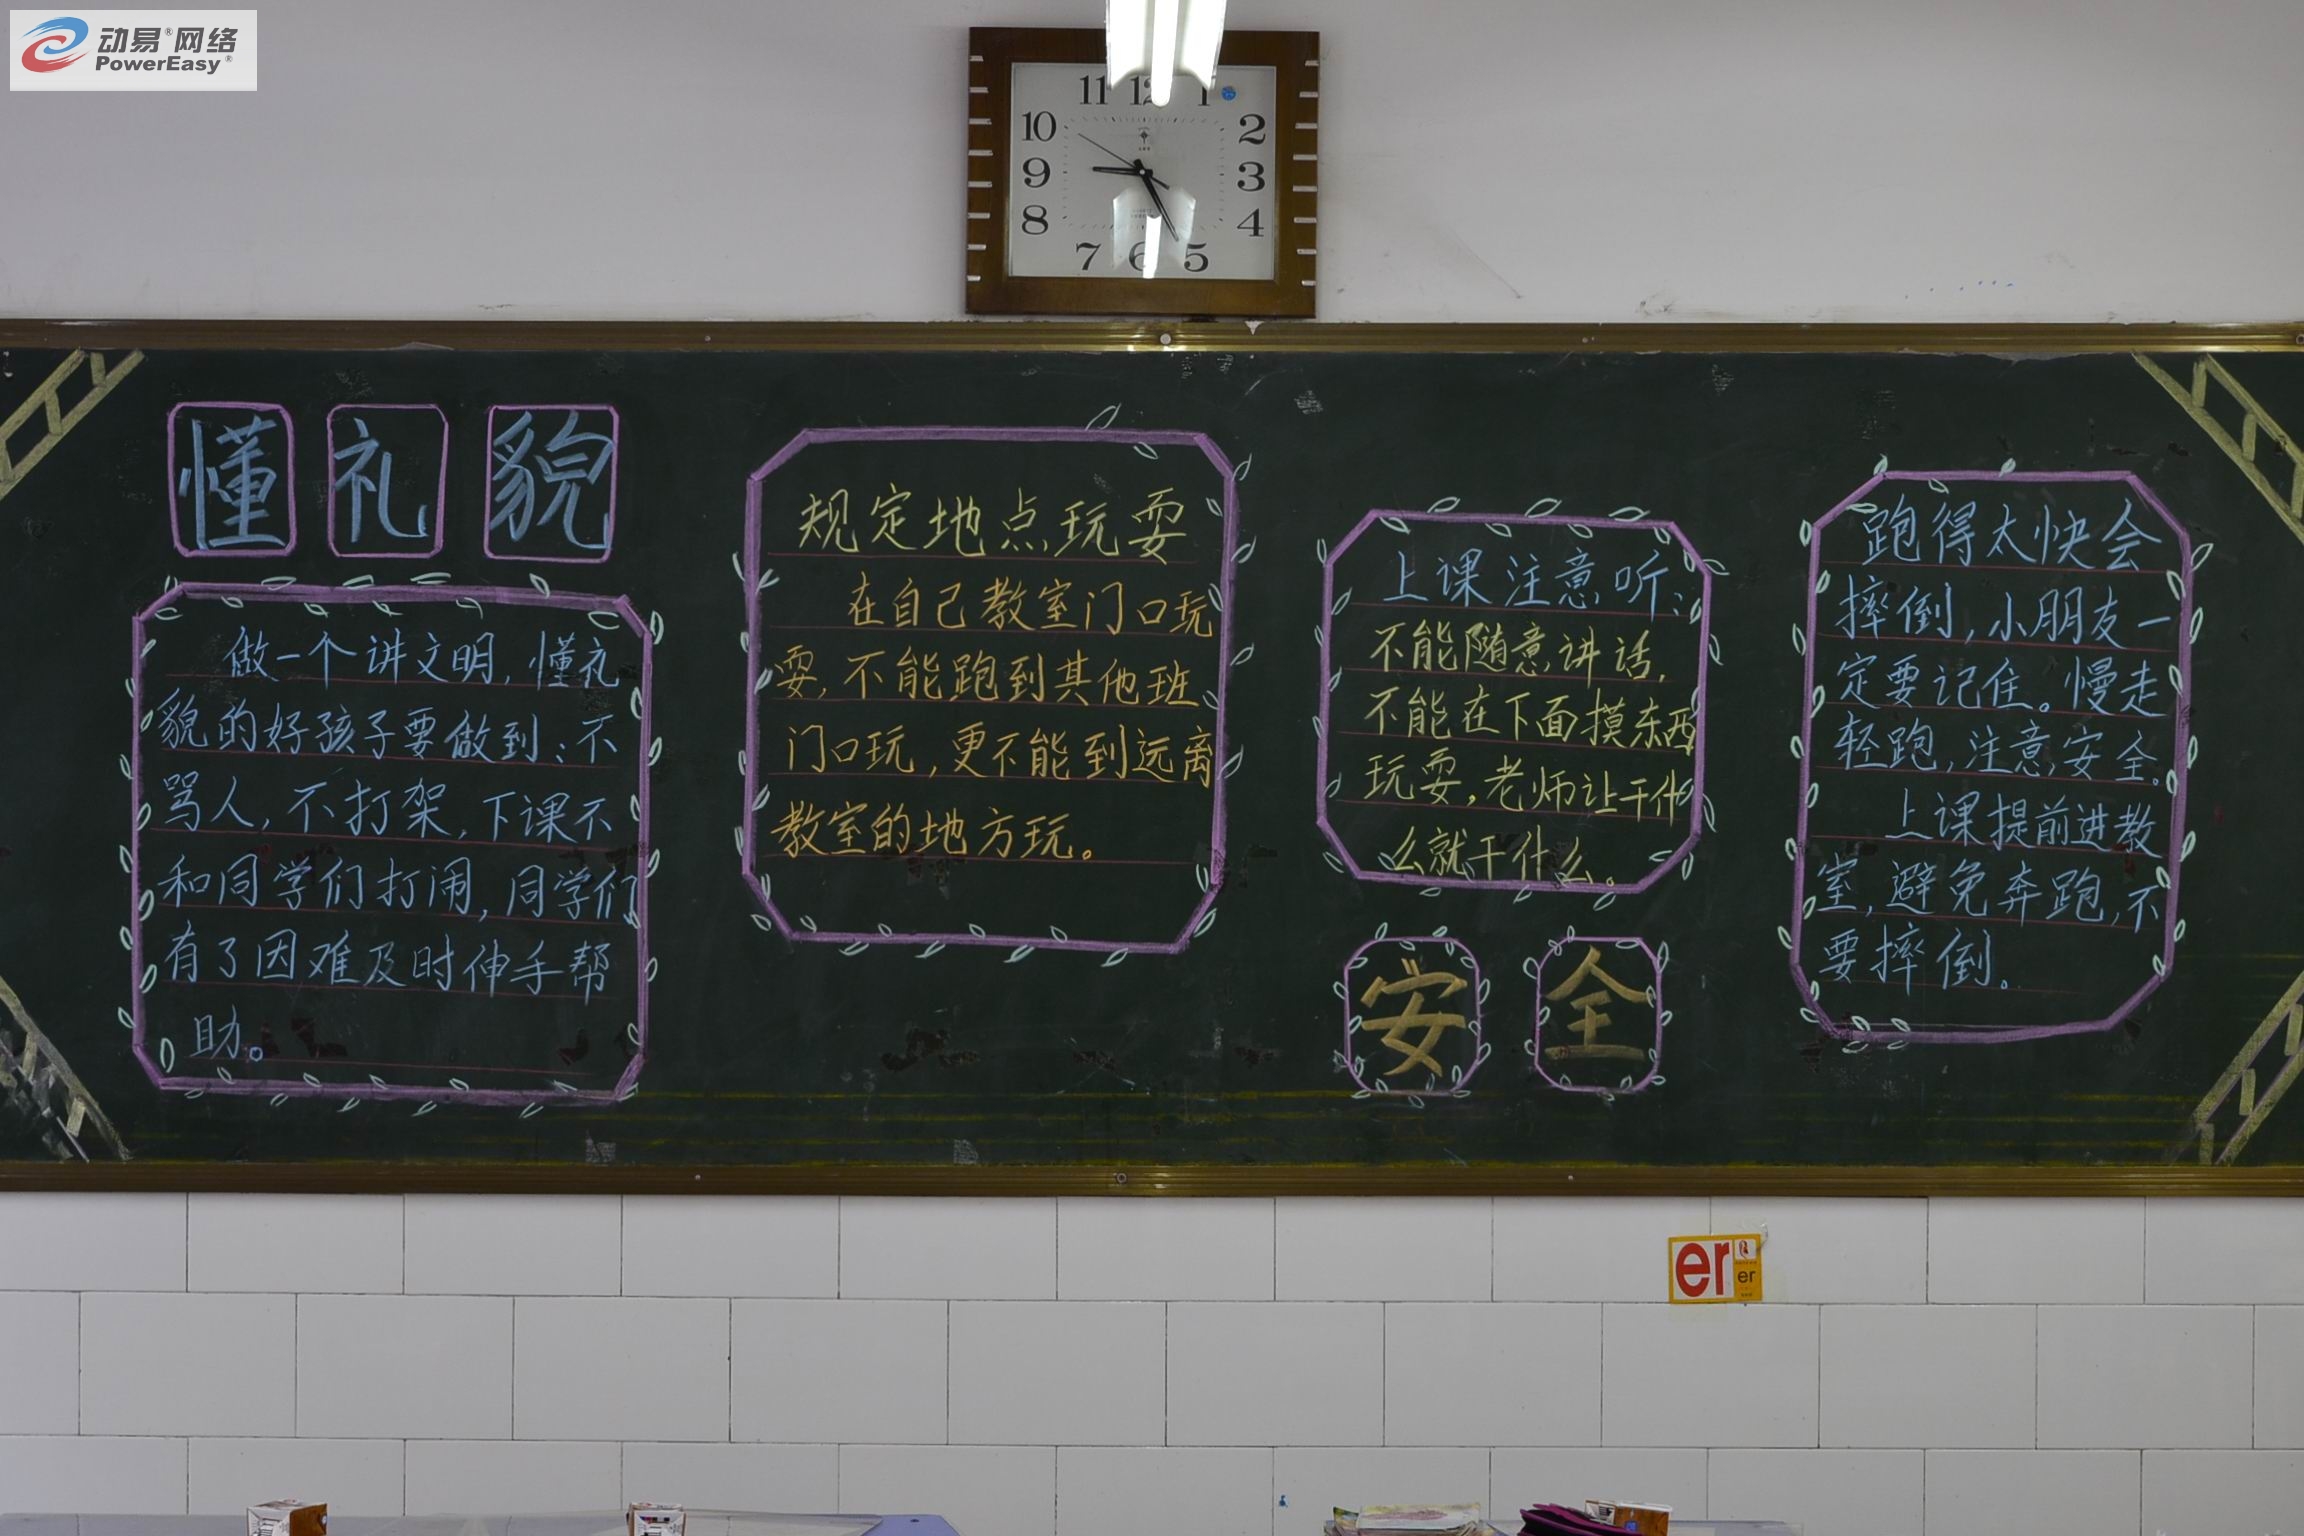 动易®网络
PowerEasy®
11 12 1
10 2
9 3
8 4
7 6 5
懂礼貌
做一个讲文明,懂礼
貌的好孩子要做到:不
骂人,不打架,下课不
和同学们打闹,同学们
有了因难及时伸手帮
助。
规定地点玩耍
在自己教室门口玩
耍,不能跑到其他班
门口玩,更不能到远离
教室的地方玩。
上课注意听:
不能随意讲话,
不能在下面摸东西
玩耍,老师让干什
么就干什么。
安全
跑得太快会
摔倒,小朋友一
定要记住。慢走
轻跑,注意安全。
上课提前进教
室,避免奔跑,不
要摔倒。
er
er